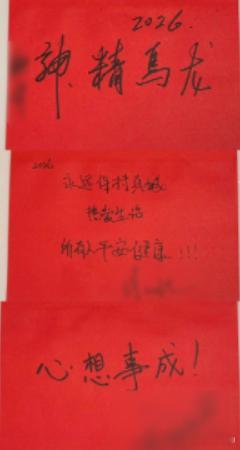 2026.
神精馬龙
2026
永远保持真诚
热爱生活
所有人平安健康!!!
心想事成!